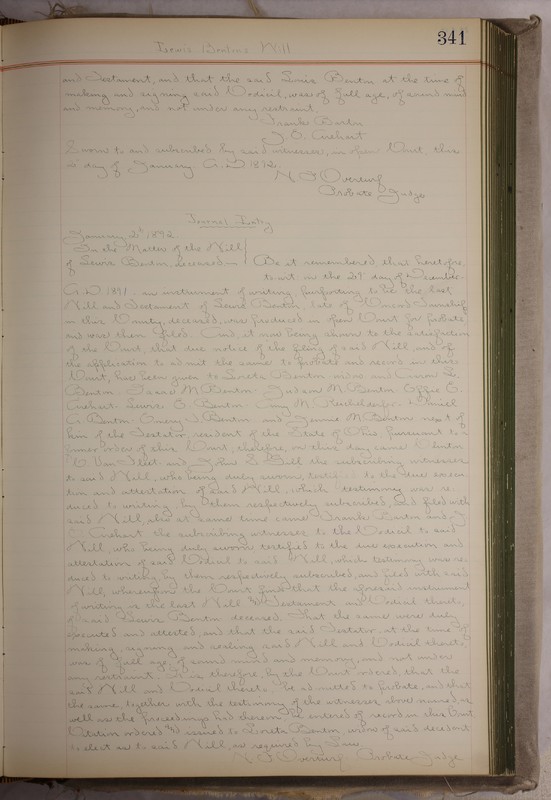 341
Lewis Benton's Will
and Testament, and that the said Lewis Benton at the time of
making and signing said Codicil, was of full age, of sound mind
and memory, and not under any restraint.
Frank Barton
J. E. Gehart
Sworn to and subscribed by said witnesses, in open Court, this
2d day of January A.D 1892.
Probate Judge
Journal Entry
January 2d 1892.
In the Matter of the Will
of Lewis Benton, deceased
Be it remembered that heretofore,
to wit on the 29 day of December
A.D 1891 an instrument of writing, purporting to be the last
Will and Testament of Lewis Benton, late of Township
in this County, deceased, was produced in open Court for probate
and was then filed. And, it now being shown to the satisfaction
of the Court, that due notice of the filing of said Will, and of
the application to admit the same to probate and record in this
Court, has been given to Benton widow and
Benton Isaac M. Benton Judson M. Benton Effie E.
Gehart Lewis E. Benton M.
A. Benton Emery J. Benton and Jennie M Benton next of
kin of the Testator, resident of the State of Ohio, pursuant to a
former order of this Court; therefore, on this day came
and John S. Gill the subscribing witnesses
to said Will, who being duly sworn, testified to the due execu-
tion and attestation of said Will, which testimony was re-
duced to writing by them respectively subscribed, and filed with
said Will, also at same time came Frank Barton and J.
E. Gehart the subscribing witnesses to the Codicil to said
Will, who being duly sworn testified to the due execution and
attestation of said Codicil to said Will, which testimony was re-
duced to writing by them respectively subscribed, and filed with said
Will, whereupon the Court finds that the aforesaid instrument
of writing is the last Will and Testament and Codicil thereto,
of said Lewis Benton deceased. That the same were duly
executed and attested, and that the said Testator, at the time of
making, signing and sealing said Will and Codicil thereto
was of full age, of sound mind and memory, and not under
any restraint. It is therefore, by the Court ordered, that the
said Will and Codicil thereto be admitted to probate, and that
the same, together with the testimony of the witnesses above named, as
well as the proceedings had thereon be entered of record in this Court
Citation ordered and issued to Benton widow of said decedent
to elect as to said Will, as required by Law.
Probate Judge